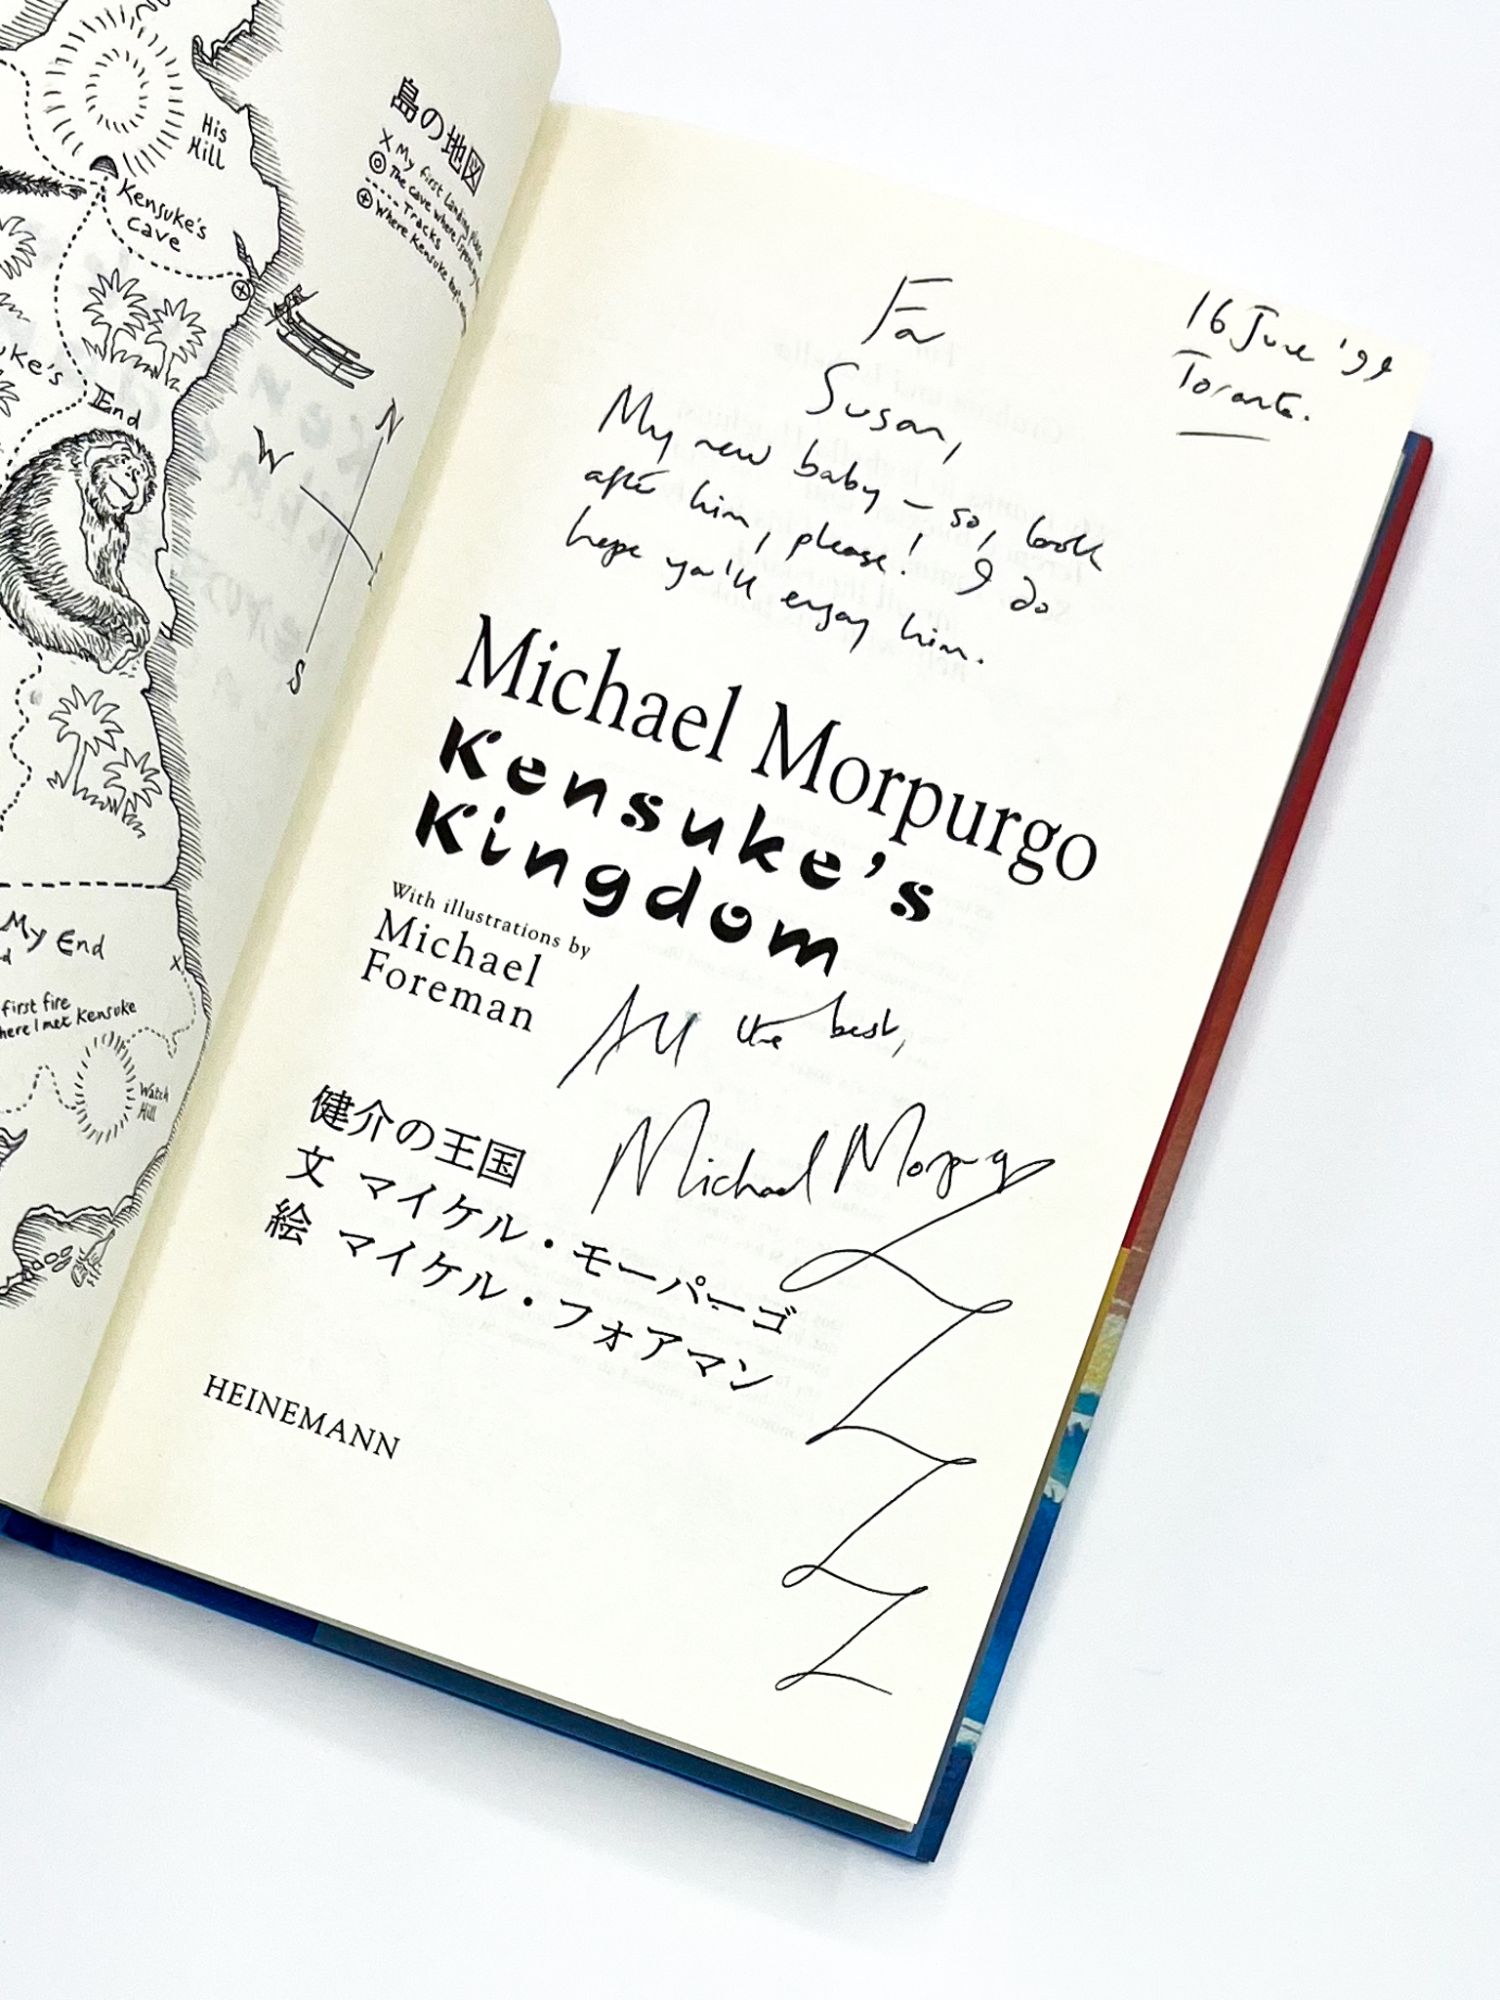 His
Hill
Kensuke's
Cave
End
N
W
S
My End
first fire
here I met Kensuke
Watch
Hill
島の地図
X My first landing place
The cave where I spent my
Tracks
Where Kensuke kept
For
Susan,
16 June '99
Toronto.
My new baby – so, look
after him, please! I do
hope you'll enjoy him.
Michael Morpurgo
Kensuke's
Kingdom
With illustrations by
Michael
Foreman
All the best,
Michael Morpurgo
健介の王国
文 マイケル・モーパーゴ
絵 マイケル・フォアマン
HEINEMANN